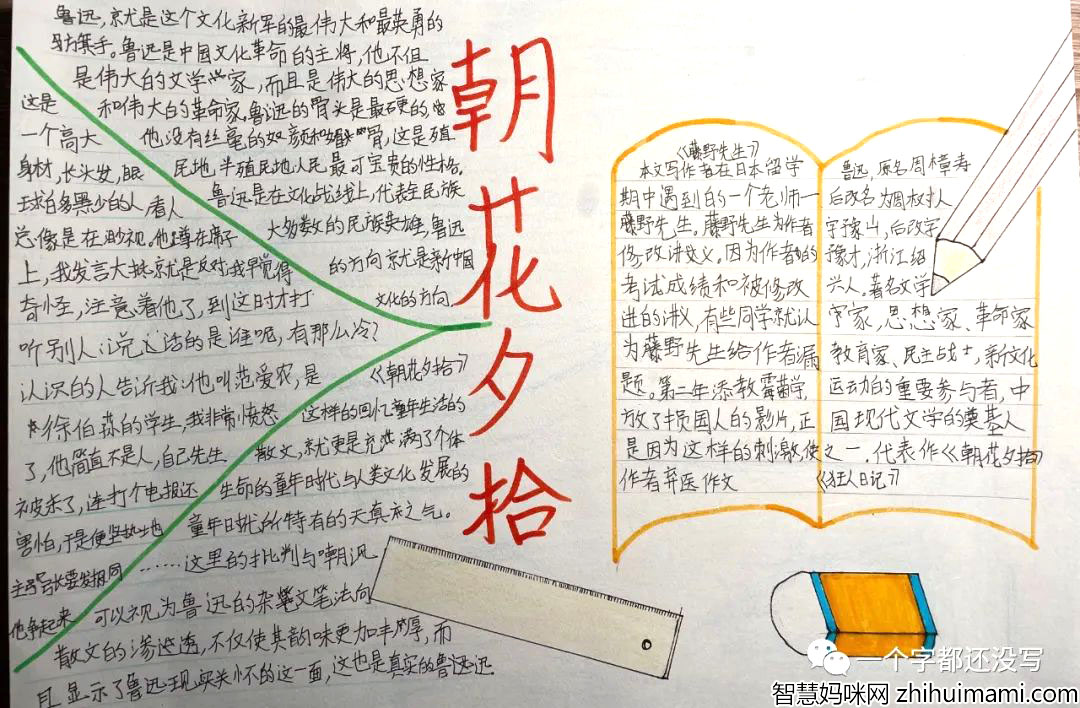 鲁迅,就是这个文化新军的最伟大和最英勇的
旗手。鲁迅是中国文化革命的主将,他不但
是伟大的文学家,而且是伟大的思想家
和伟大的革命家。鲁迅的骨头是最硬的,
他没有丝毫的奴颜和媚骨,这是殖
民地,半殖民地人民最可宝贵的性格。
鲁迅是在文化战线上,代表全民族
大多数的民族英雄,鲁迅
的方向就是新中国
文化的方向。
这是
一个高大
身材,长头发,眼
球白多黑少的人,看人
总像是在渺视。他蹲在席子
上,我发言大抵就是反对,我早觉得
奇怪,注意着他了,到这时才打
听别人:说这话的是谁呢,有那么冷?
认识的人告诉我:他叫范爱农,是
徐伯荪的学生,我非常愤怒
了,他简直不是人,自己先生
被杀了,连打个电报还
害怕,于是便坚执地
主张要发报,同
他争起来
《朝花夕拾》
这样的回忆童年生活的
散文,就更是充满了个体
生命的童年时代与人类文化发展的
童年时代所特有的天真之气。
……这里的批判与嘲讽
可以视为鲁迅的杂文笔法向
散文的渗透,不仅使其韵味更加丰厚,而
且显示了鲁迅现实关怀的这一面,这也是真实的鲁迅。
朝花夕拾
《藤野先生》
本文写作者在日本留学
期中遇到的一个老师一
藤野先生。藤野先生为作者
修改讲义。因为作者的
考试成绩和被修改
进的讲义,有些同学就认
为藤野先生给作者漏
题。第二年添教霉菌学,
放了损国人的影片,正
是因为这样的刺激使
作者弃医作文
鲁迅,原名周樟寿
后改名为周树人
字豫山,后改字
豫才,浙江绍
兴人。著名文学
家,思想家、革命家
教育家、民主战士,新文化
运动的重要参与者,中
国现代文学的奠基人
之一.代表作《朝花夕拾》
《狂人日记》
一个字都还没写
智慧妈咪网 zhihuimami.com